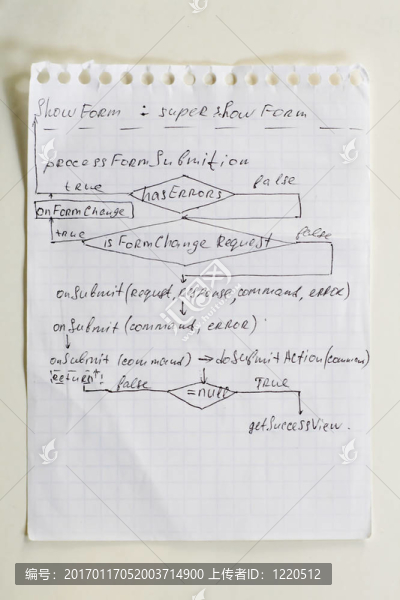 ShowForm : super.showForm
processFormSubmition
true
hasErrors
false
onFormChange
true
isFormChangeRequest
false
onSubmit(request, response, command, error)
onSubmit (command, error)
onSubmit (command) → doSubmitAction(command)
return!
false
=null
TRUE
getSuccessView.
编号：20170117052003714900 上传者ID：1220512